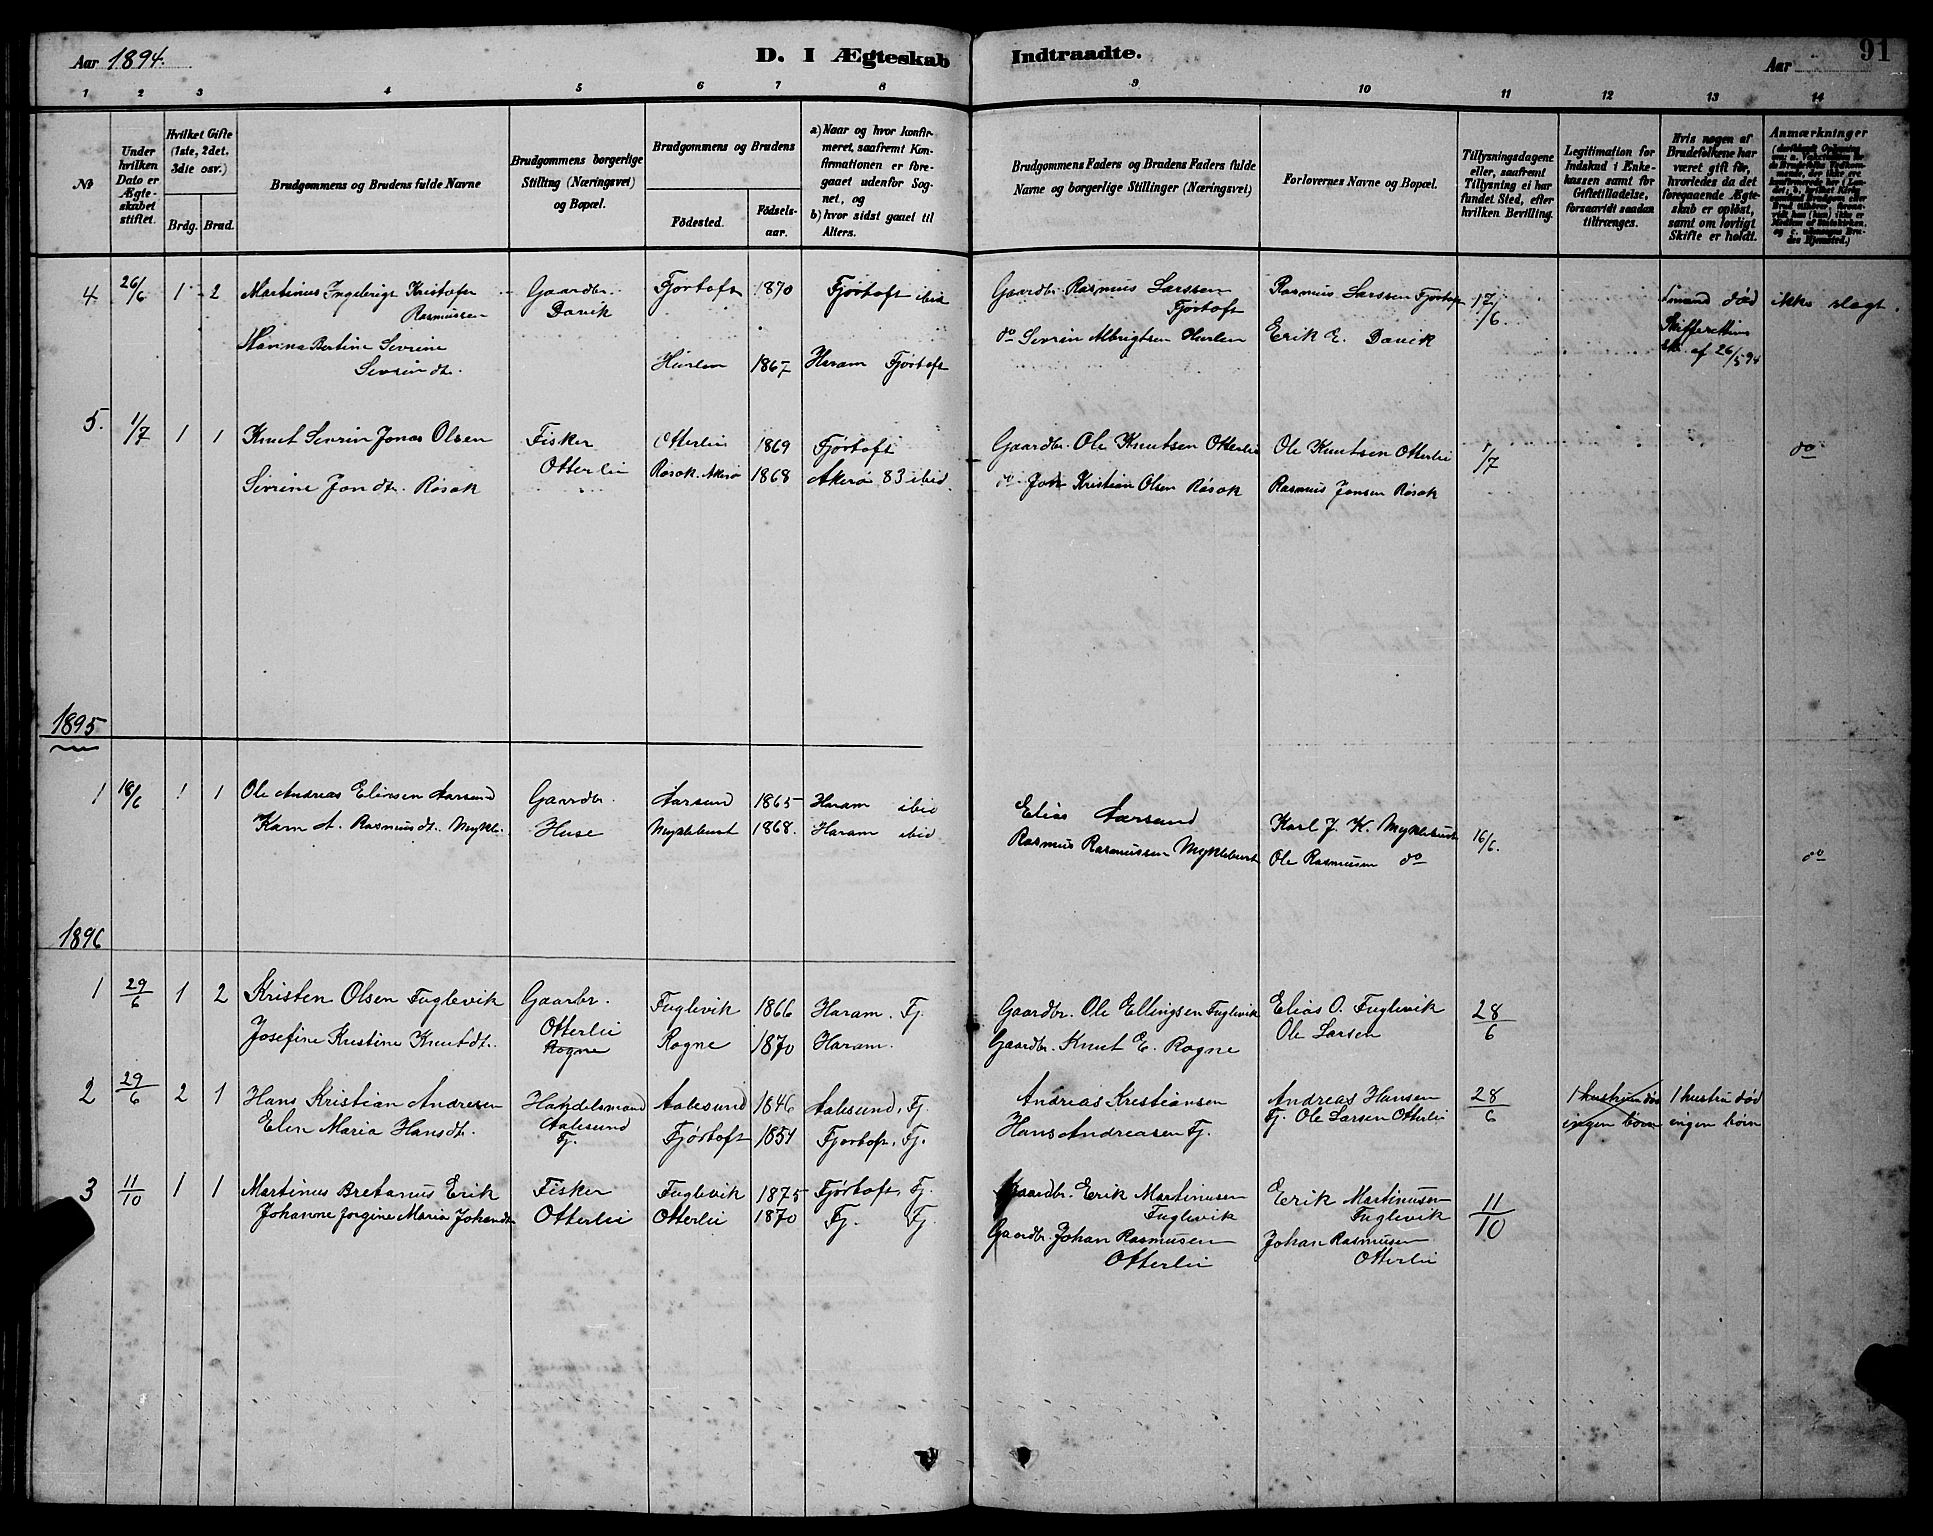 Aar 1894.
D. I Ægteskab Indtraadte.
Aar
91
1 2 3 4 5 6 7 8 9 10 11 12 13 14
№
Under hvilken Dato er Ægteskabet stiftet.
Hvilket Gifte (1ste, 2det, 3die osv.)
Brdg. Brud.
Brudgommens og Brudens fulde Navne
Brudgommens borgerlige Stilling (Næringsvei) og Bopæl.
Brudgommens og Brudens
Födested. Födsels-aar.
a) Naar og hvor konfirmeret, saafremt Konfirmationen er foregaaet udenfor Sognet, og
b) hvor sidst gaaet til Alters.
Brudgommens Faders og Brudens Faders fulde Navne og borgerlige Stillinger (Næringsvei)
Forlovernes Navne og Bopæl.
Tillysningsdagene eller, saafremt Tillysning ei har fundet Sted, efter hvilken Bevilling.
Legitimation for Indskud i Enkekassen samt for Giftetilladelse, forsaavidt saadan tiltrænges.
Hvis nogen af Brudefolkene har været gift før, hvorledes da det foregaaende Ægteskab er opløst, samt om lovligt Skifte er holdt.
Anmærkninger
4. 26/6 1 2 Martinus Ingebrigt Kristofer Rasmussen Gaardbr. Davik Fjørtoft 1870 Fjørtoft ibid Gaardbr. Rasmus Larssen Fjørtoft Rasmus Larssen Fjørtoft 17/6 1 mand död ikke slægt.
Hanna Bertine Sevrine Sevrin dtr. Hurlen 1867 Haram Fjørtoft do Sevrin Albrigtsen Hurlen Erik E. Davik Skifterettens af 26/5 94
5. 1/7 1 1 Knut Sevrin Jonas Olsen Fisker Otterlei Otterlei 1869 Fjørtoft Gaardbr. Ole Knutsen Otterlei Ole Knutsen Otterlei 1/7 do
Sevrine Jondtr. Røsok Røsok. Akerø 1868 Akerø 83 ibid. do Kristian Olsen Røsok Rasmus Jonsen Røsok
1895
1 18/6 1 1 Ole Andreas Eliasen Aarsund Gaardbr. Huse Aarsund 1865 Haram ibid Elias Aarsund Karl J. K. Myklebust 16/6. do
Karn A. Rasmusdt. Mykle. Myklebust 1868. Haram ibid Rasmus Rasmussen Myklebust Ole Rasmusen do
1896
1 29/6 1 2 Kristen Olsen Fuglevik Gaarbr. Otterlei Fuglevik 1866 Haram. Fj. Gaardbr. Ole Ellingsen Fuglevik Elias O. Fuglevik 28/6
Josefine Kristine Knutdt. Rogne Rogne 1870 Haram. Gaardbr. Knut E. Rogne Ole Larsen
2 29/6 2 1 Hans Kristian Andresen Handelsmand Aalesund Fj. Aalesund 1846 Aalesund, Fj. Andreas Kristiansen Andreas Hansen 28/6 1 hustru død 1 hustru död
Elen Maria Hansdt. Fjørtoft 1854 Fjortoft, Fj. Hans Andreasen Fj. Fj. Ole Larsen Otterlei ingen børn ingen børn
3 11/10 1 1 Martinus Bretanus Erik Fisker Fuglevik 1875 Fjörtoft, Fj. Gaardbr. Erik Martinusen Fuglevik Erik Martinusen Fuglevik 11/10
Johanne Jorgine Maria Johandt. Otterlei Otterlei 1870 Fj. Fj. Gaardbr. Johan Rasmusen Otterlei Johan Rasmusen Otterlei